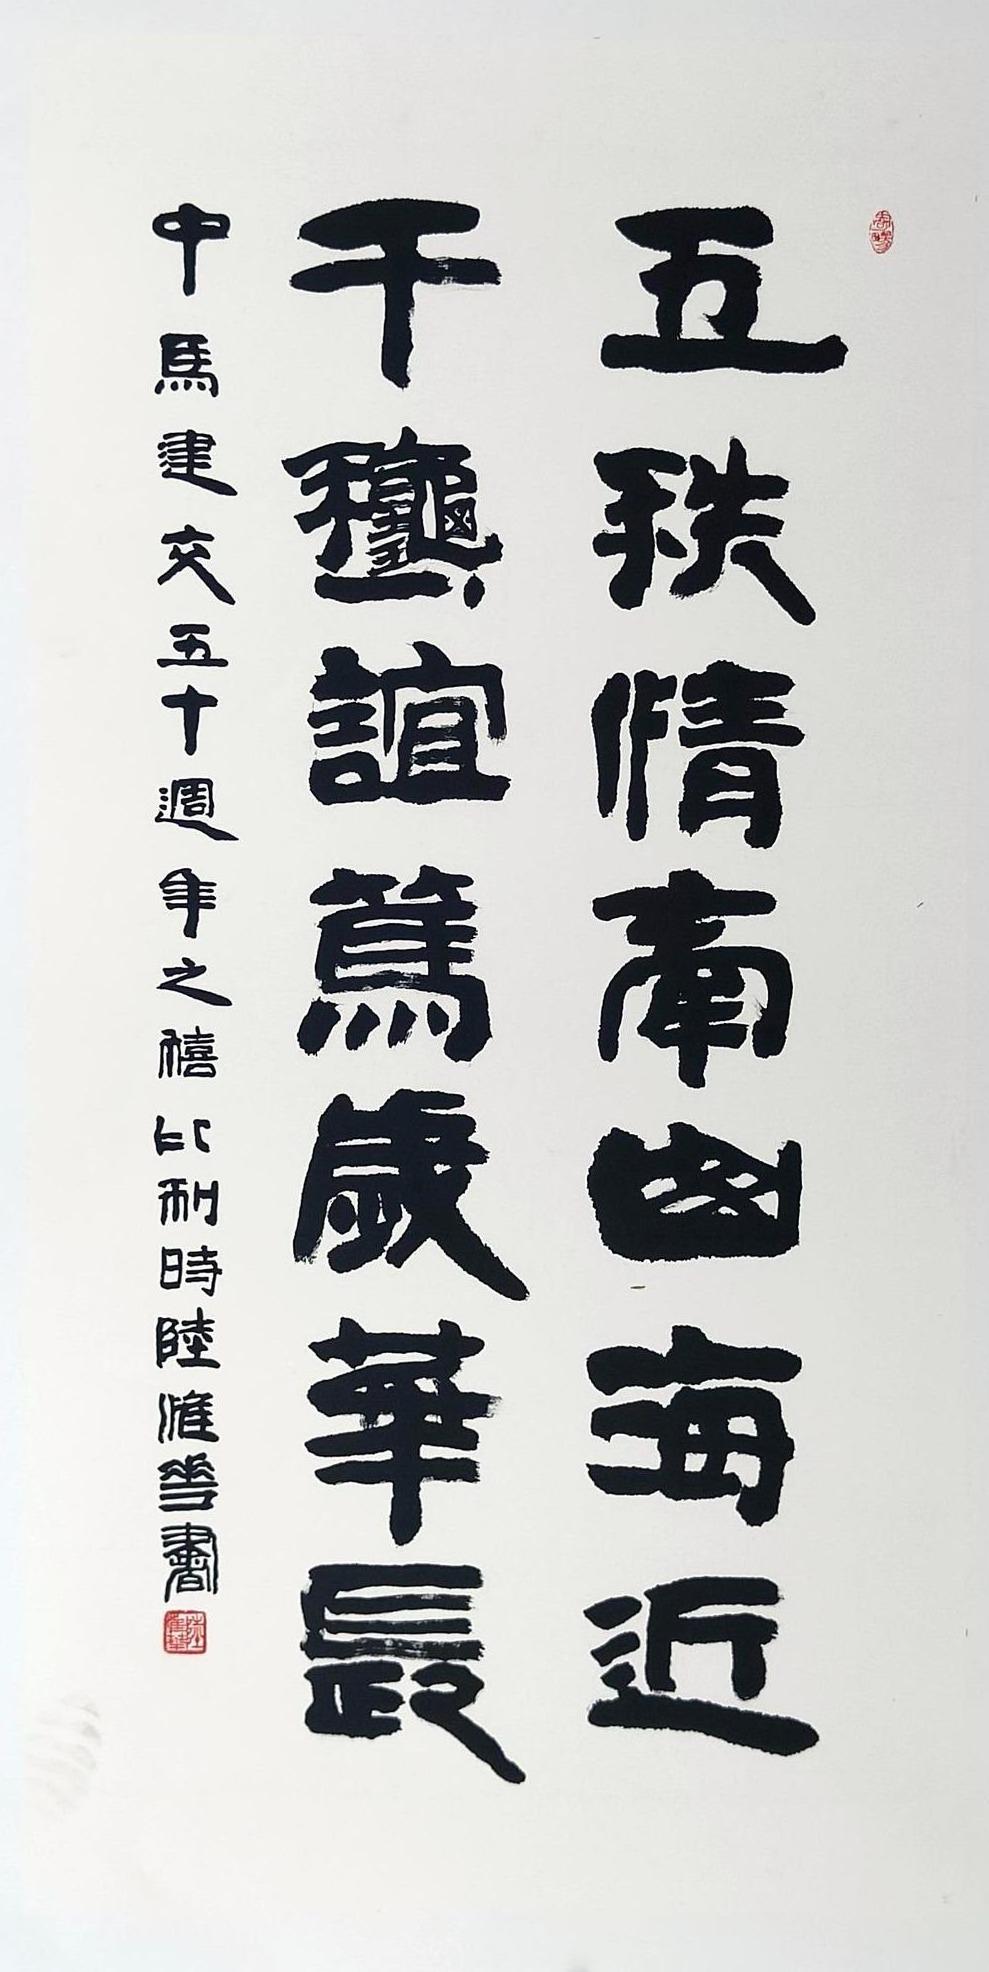 五秩情牽山海近
千龝誼篤歲華長
中馬建交五十週年之禧比利時陸惟華書